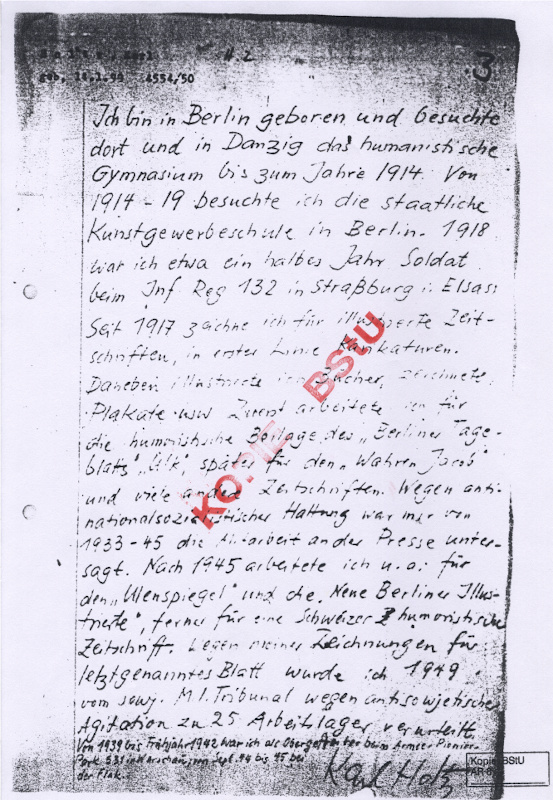 # 2
3
geb. 14.1.99 4554/50
Ich bin in Berlin geboren und besuchte
dort und in Danzig das humanistische
Gymnasium bis zum Jahre 1914. Von
1914 - 19 besuchte ich die staatliche
Kunstgewerbeschule in Berlin. 1918
war ich etwa ein halbes Jahr Soldat
beim Inf Reg 132 in Straßburg i. Elsass
Seit 1917 zeichne ich für illustrierte Zeit-
schriften, in erster Linie Karikaturen.
Daneben illustrierte ich Bücher, zeichnete
Plakate usw Zuerst arbeitete ich für
die humoristische Beilage des „Berliner Tage-
blatts" „Ulk", später für den „Wahren Jacob"
und viele andere Zeitschriften. Wegen anti-
nationalsozialistischer Haltung war mir von
1933 - 45 die Mitarbeit an der Presse unter-
sagt. Nach 1945 arbeitete ich u. a. für
den „Ulenspiegel" und die „Neue Berliner Illus-
trierte", ferner für eine Schweizer humoristische
Zeitschrift. Wegen meiner Zeichnungen für
letztgenanntes Blatt wurde ich 1949
vom sowj. M.I. Tribunal wegen antisowjetischer
Agitation zu 25 Arbeitslager verurteilt.
Von 1939 bis Frühjahr 1942 war ich als Obergefreiter beim Armee Pionier-
Park 531 in Warschau, von Sept. 44 bis 45 bei
der Flak.
Karl Holtz
KOPIE BStU
Kopie BStU
AR 8